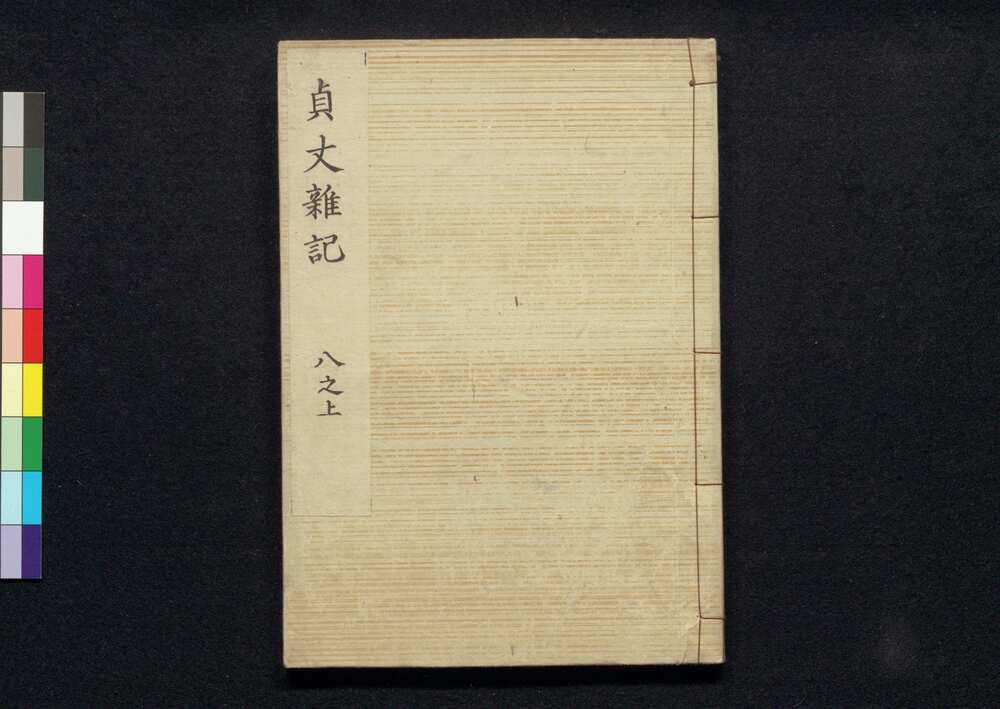 貞丈雜記
八之上